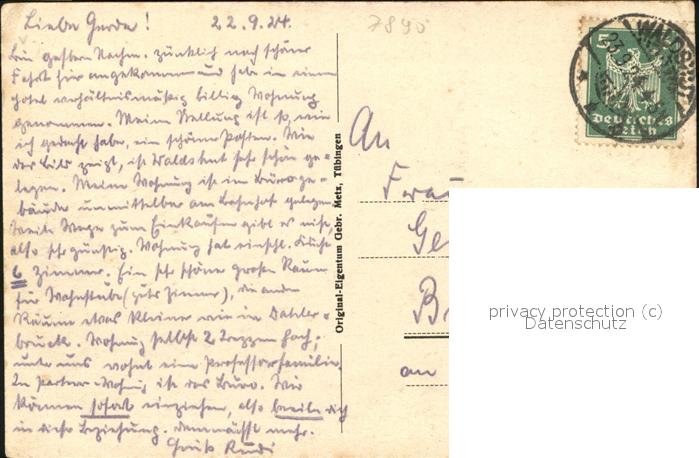 Liebe Gerda! 22.9.24.
7890
Bin gestern Nachm. pünklich nach schöner
Fahrt hier angekommen und habe in einem
Hotel verhältnismäßig billig Wohnung
genommen. Meine Stellung ist so, wie
ich gedacht habe, ein schöner Posten. Wie
das Bild zeigt, ist Waldshut sehr schön ge-
legen. Meine Wohnung ist im Bürogebäude
bäude unmittelbar am Bahnhof gelegen.
Weite Wege zum Einkaufen gibt es nicht,
also sehr günstig. Wohnung hat einschl. Küche
6 Zimmer. Ein sehr schöner großer Raum
für Wohnstube (gutes Zimmer), die andern
Räume etwas kleiner wie in
bruck. Wohnung selbst 2 Treppen hoch;
unter uns wohnt eine Professorfamilie.
In Parterre-Wohng ist das Büro. Wir
können sofort einziehen, also beeile dich
in dieser Beziehung. Demnächst mehr.
Gruß Rudi
Original-Eigentum Gebr. Metz, Tübingen
An
Frau
Ge
B
an
5
Deutsches
Reich
WALDSHUT
privacy protection (c)
Datenschutz